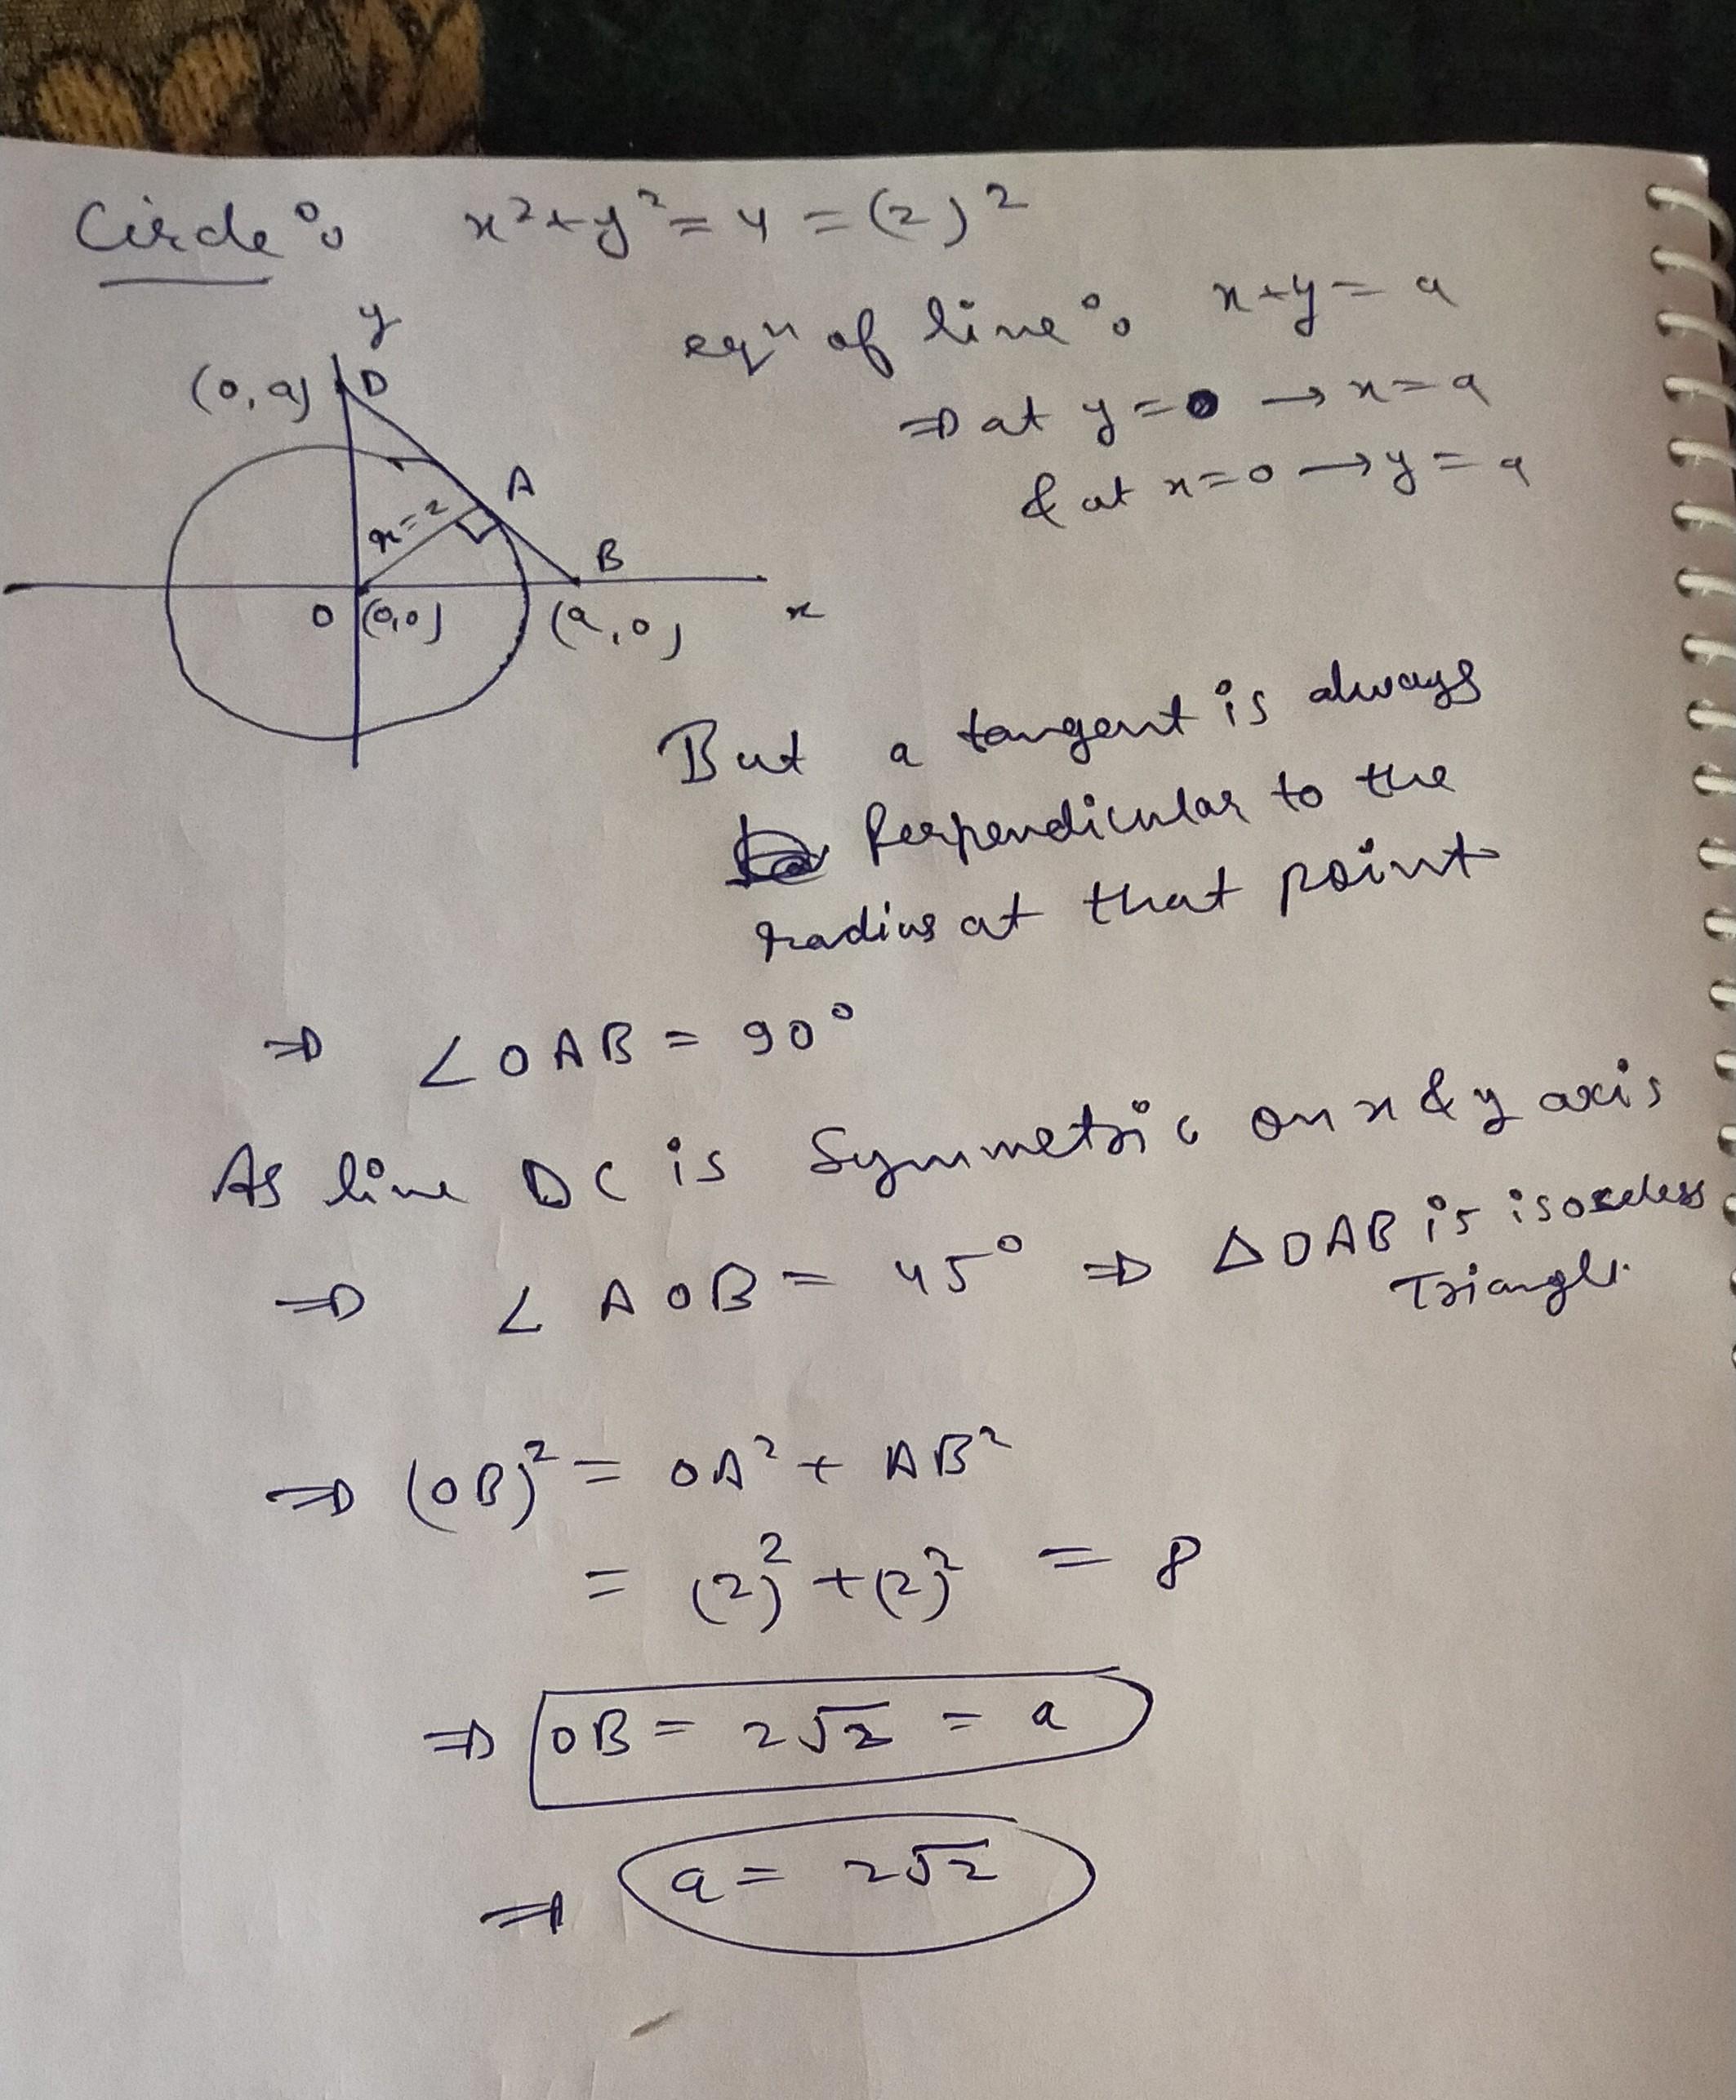 Circle : x²+y²=4=(2)²
y
eqⁿ of line : x+y=a
(0,a) D
⇒ at y=0 → x=a
& at x=0 → y=a
A
r=2
B
O (0,0) (a,0) x
But a tangent is always
Perpendicular to the
radius at that point
⇒ ∠OAB = 90°
As line DC is Symmetric on x & y axis
⇒ ∠AOB = 45° ⇒ ΔOAB is isosceless
Triangle.
⇒ (OB)² = OA² + AB²
= (2)² + (2)² = 8
⇒ OB = 2√2 = a
⇒ a = 2√2